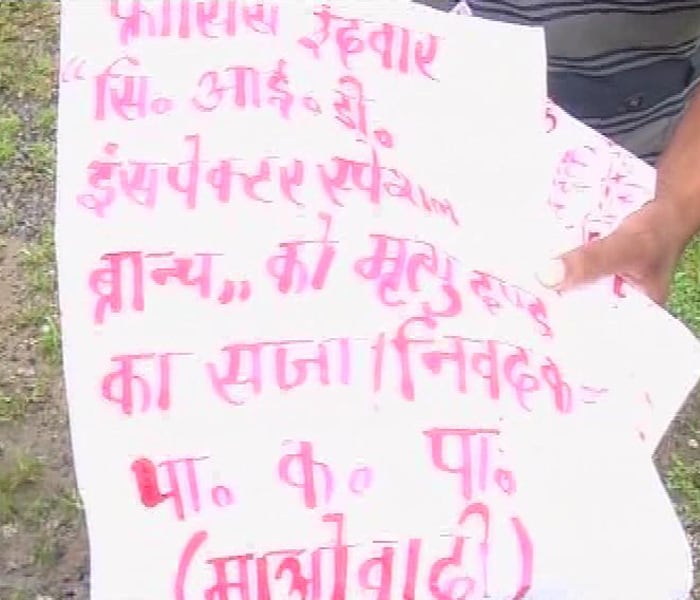 फ्रांसिस इंदवार
“सि॰ आई॰ डी॰
इंसपेक्टर स्पेशल
ब्रान्च,, को मृत्यु दण्ड
का सजा। निवेदक =
भा॰ क॰ पा॰
(माओवादी)